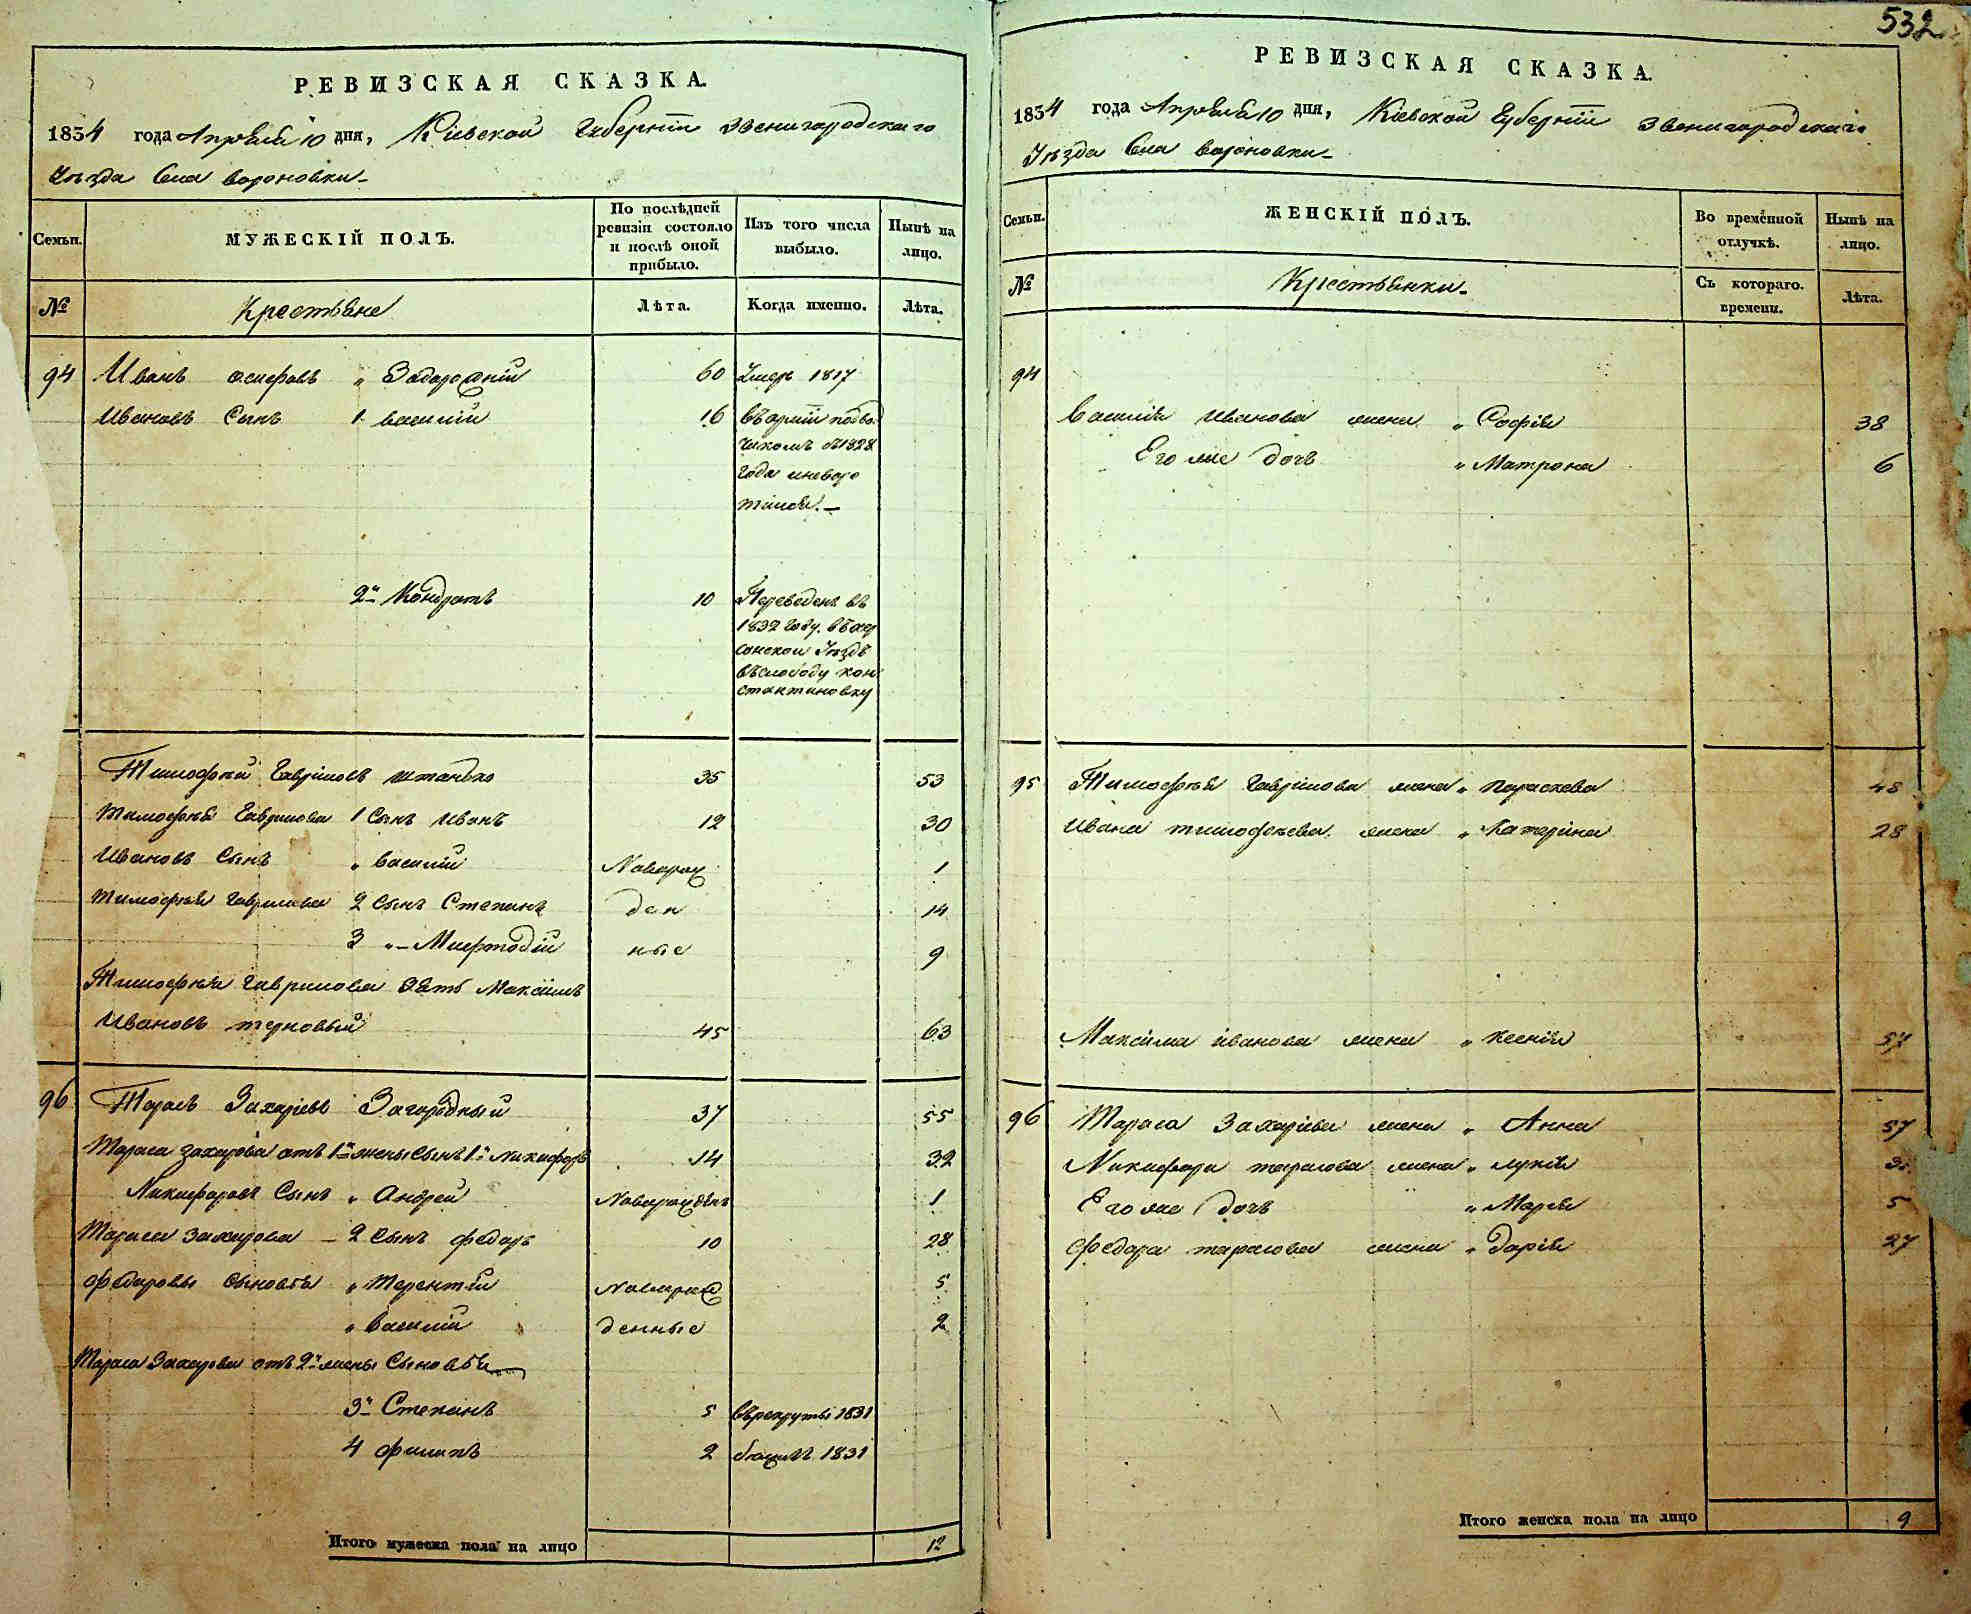 532
РЕВИЗСКАЯ СКАЗКА.
1834 года Апреля 10 дня, Кіевской Губерніи Звенигородскаго
Уезда Села Вороновки
Семьи. МУЖЕСКІЙ ПОЛЪ. По послѣдней ревизіи состояло и послѣ оной прибыло. Изъ того числа выбыло. Нынѣ на лицо.
№ Крестьяне Лѣта. Когда именно. Лѣта.
94 Иванъ Осифовъ Задорожній 60 Умеръ 1817
Ивановъ Сынъ 1 Василій 16 въ арміи
съ 1828
года
2й Кондратъ 10 Переведенъ въ
1832 году въ Хер
сонской Уездъ
въ слободу Кон
стантиновку
Тимофей Гавриловъ Штанько 35 53
Тимофея Гаврилова 1 Сынъ Иванъ 12 30
Ивановъ Сынъ " Василій Новорож 1
Тимофея Гаврилова 2 Сынъ Степанъ ден 14
3 " Мефтодій ные 9
Тимофея Гаврилова Зять Максимъ
Ивановъ Терновый 45 63
96 Тарасъ Захаріевъ Загородный 37 55
Тараса Захарова отъ 1й жены Сынъ 1й Никифоръ 14 32
Никифоровъ Сынъ " Андрей Новорожденъ 1
Тараса Захарова 2 Сынъ Федоръ 10 28
Федоровы Сыновья " Терентій Новорож 5
" Василій денные 2
Тараса Захарова отъ 2й жены Сыновья
3й Степанъ 5 в рекруты 1831
4 Филипъ 2 1831
Итого мужеска пола на лицо 12
РЕВИЗСКАЯ СКАЗКА.
1834 года Апреля 10 дня, Кіевской Губерніи Звенигородскаго
Уезда Села Вороновки
Семьи. ЖЕНСКІЙ ПОЛЪ. Во временной отлучкѣ. Нынѣ на лицо.
№ Крестьянки Съ котораго времени. Лѣта.
94
Василія Иванова жена " Софія 38
Его же дочь " Матрона 6
95 Тимофея Гаврилова жена " Параскева 48
Ивана Тимофеева жена " Катерина 28
Максима Иванова жена " Ксенія 57
96 Тараса Захаріева жена " Анна 57
Никифора Тарасова жена " Лукія
Его же дочь " Марія 5
Федора Тарасова жена " Дарія 27
Итого женска пола на лицо 9